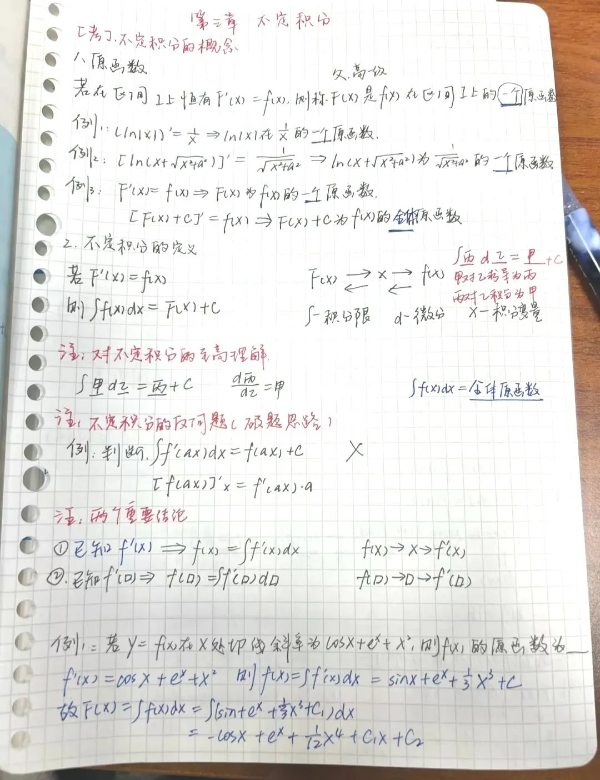 第三章 不定积分
[考]. 不定积分的概念
1. 原函数
欠.高级
若在区间 I上恒有 F'(x) = f(x). 则称 F(x) 是 f(x) 在区间 I上的一个原函数
例1: (ln|x|)' = 1/x ⇒ ln|x| 在 1/x 的一个原函数.
例2: [ln(x+√(x²+a²))]' = 1/√(x²+a²) ⇒ ln(x+√(x²+a²)) 为 1/√(x²+a²) 的一个原函数
例3: F'(x) = f(x) ⇒ F(x) 为 f(x) 的一个原函数.
[F(x)+C]' = f(x) ⇒ F(x)+C 为 f(x) 的全体原函数
2. 不定积分的定义
∫丙 d乙 = 甲 + C
若 F'(x) = f(x)
F(x) → x → f(x)
← ←
甲对乙求导为丙
丙对乙积分为甲
则 ∫f(x)dx = F(x) + C
∫-积分限 d-微分 x-积分变量
注: 对不定积分的至高理解
∫甲 d乙 = 丙 + C d丙/d乙 = 甲
∫f(x)dx = 全体原函数
注: 不定积分的反问题(破题思路)
例: 判断. ∫f'(ax)dx = f(ax) + C ×
[f(ax)]'x = f'(ax)·a
注: 两个重要结论
① 已知 f'(x) ⇒ f(x) = ∫f'(x)dx f(x) → x → f'(x)
②. 已知 f'(□) ⇒ f(□) = ∫f'(□)d□ f(□) → □ → f'(□)
例1: 若 y = f(x) 在 x 处切线斜率为 cosx + eˣ + x², 则 f(x) 的原函数为__
f'(x) = cosx + eˣ + x² 则 f(x) = ∫f'(x)dx = sinx + eˣ + 1/3 x³ + C
故 F(x) = ∫f(x)dx = ∫(sin + eˣ + 1/3 x³ + C₁)dx
= -cosx + eˣ + 1/12 x⁴ + C₁x + C₂